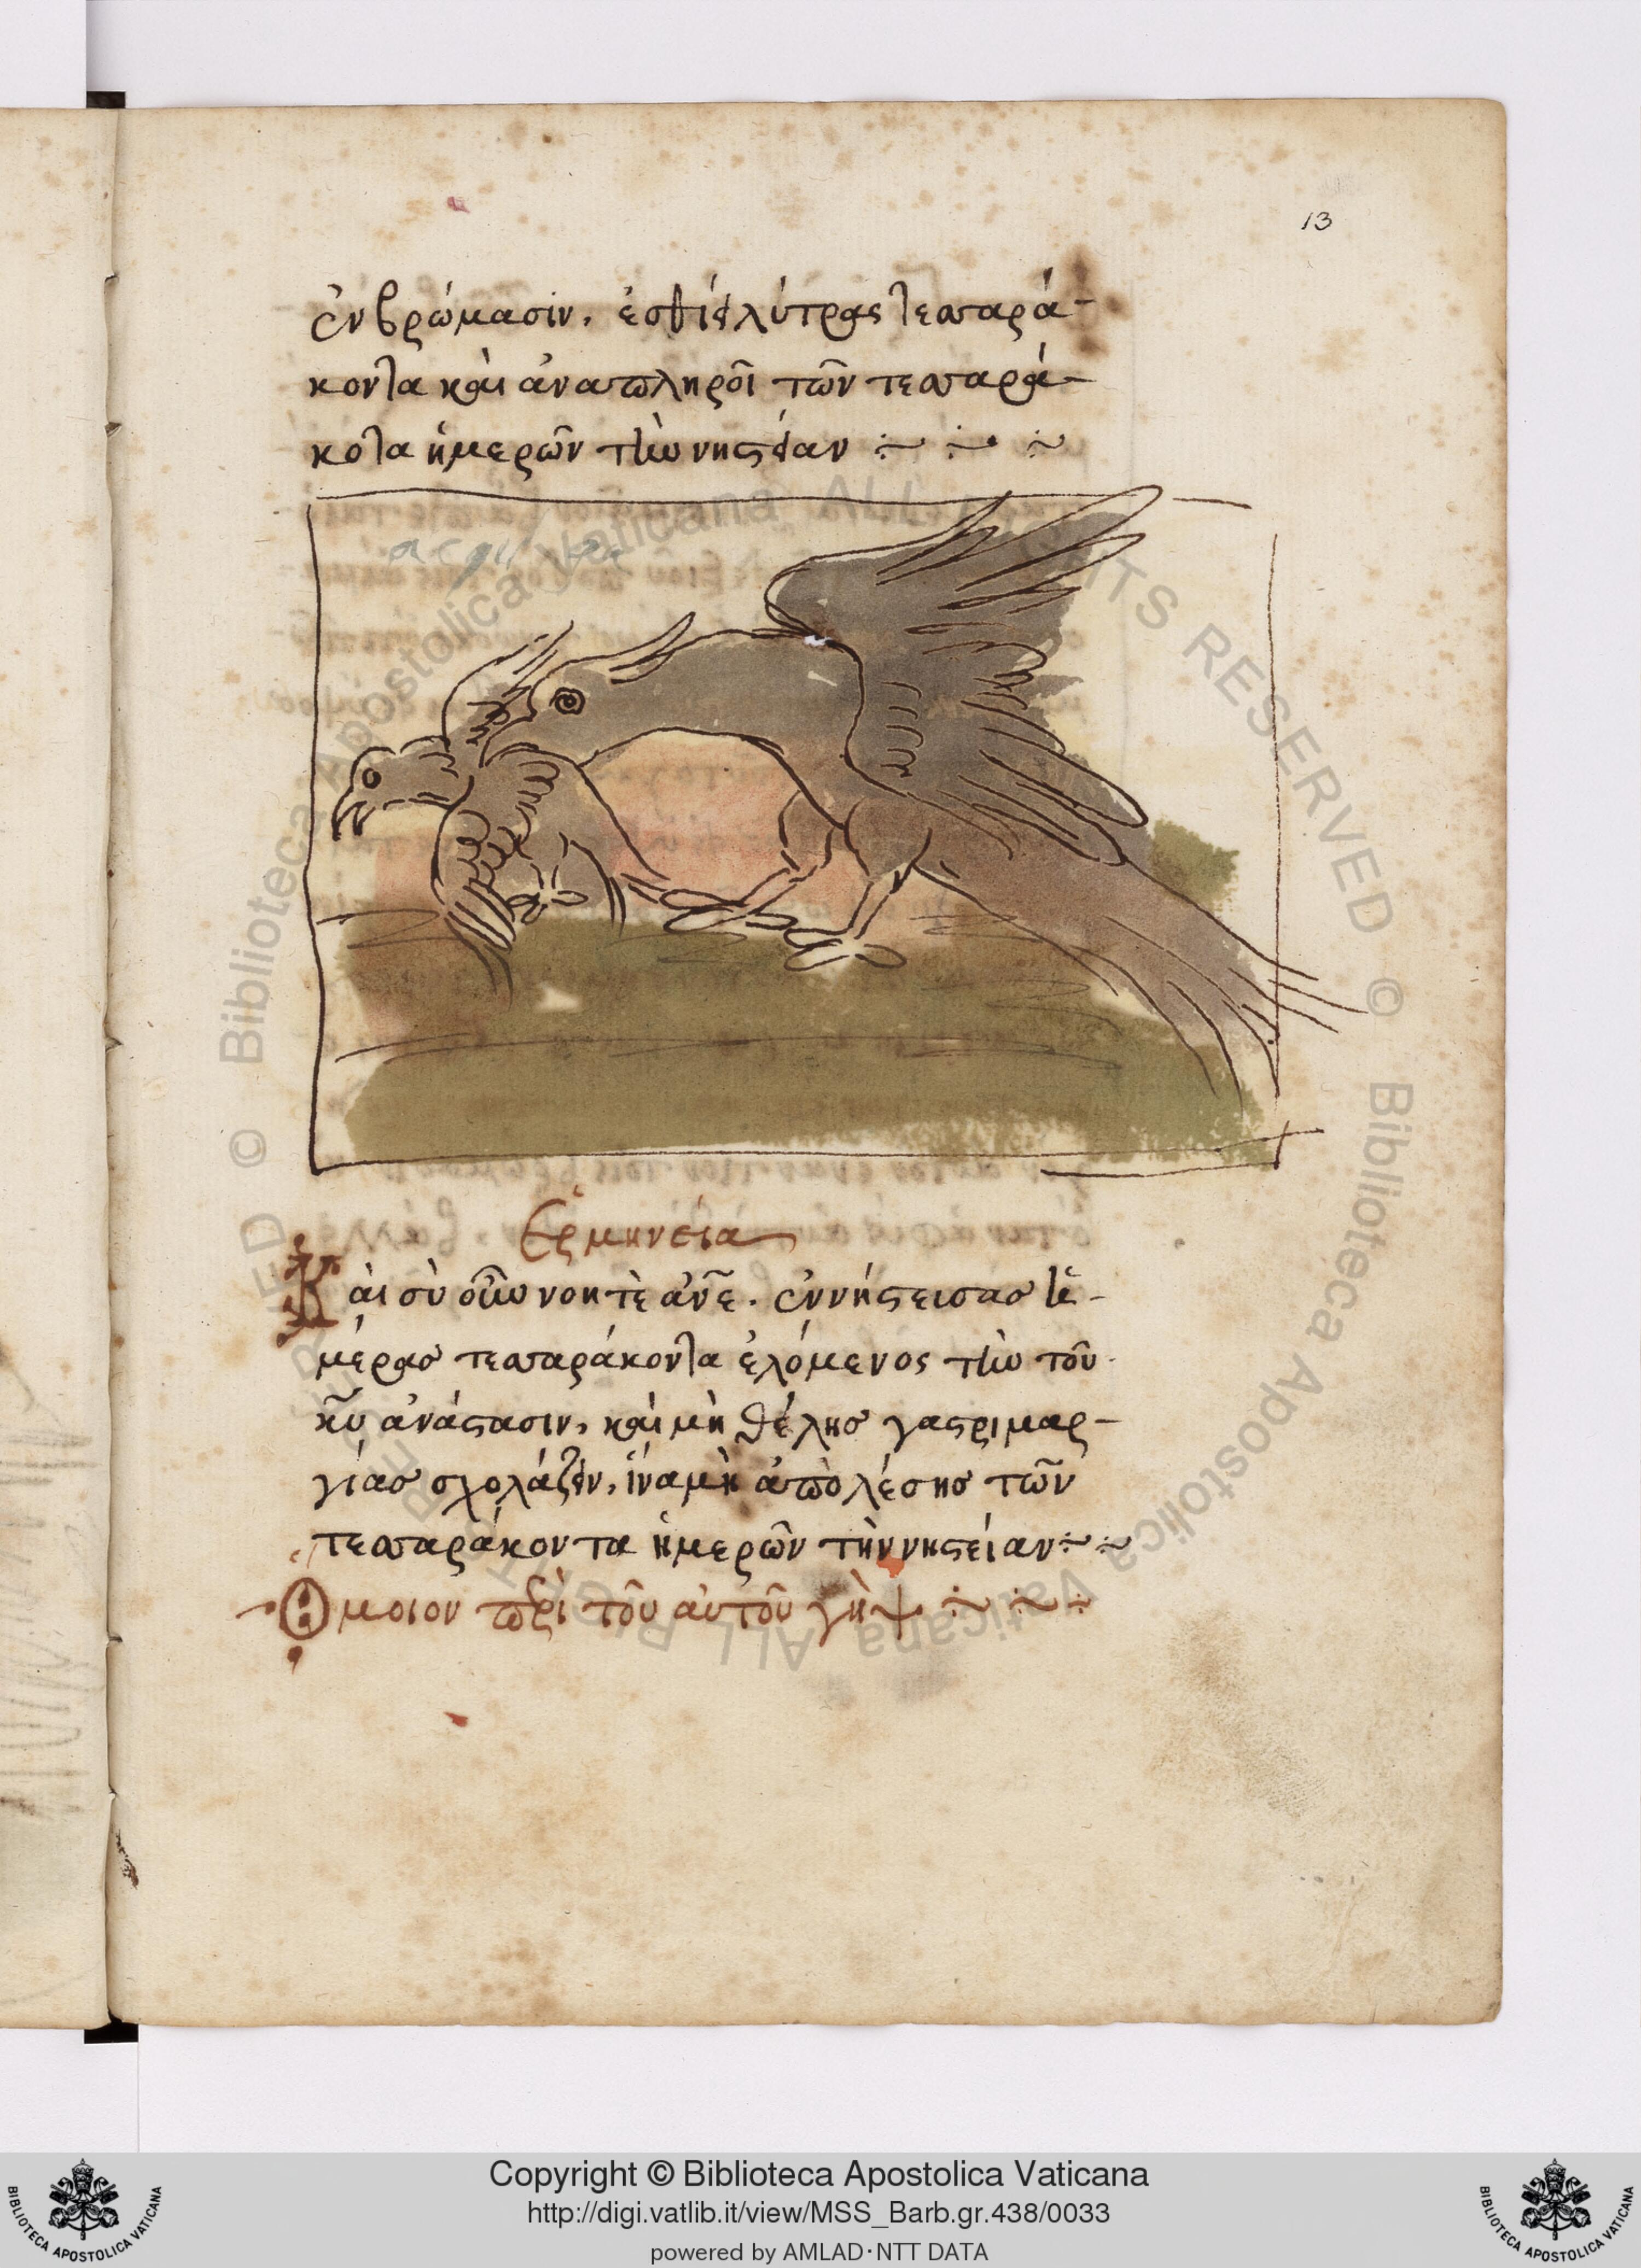 13
ἐν βρώμασιν, ἐσθίει λύτρας τεσσαρά-
κοντα καὶ ἀναπληροῖ τῶν τεσσαρά-
κοτα ἡμερῶν τὴν νηστείαν
Ἑρμηνεία
Καὶ σὺ οὖν νοητὲ ἄν̅ε. ἐν νήστεισας
μέρας τεσσαράκοντα ἑλόμενος τὴν τοῦ
κ̅υ ἀνάστασιν, καὶ μὴ θέλης γαστριμαρ-
γίας σχολάζειν, ἵνα μὴ ἀπολέσης τῶν
τεσσαράκοντα ἡμερῶν τὴν νηστείαν
Ὅμοιον περὶ τοῦ αὐτοῦ γὴψ
© Biblioteca Apostolica Vaticana ALL RIGHTS RESERVED © Biblioteca Apostolica Vaticana ALL RIGHTS RESERVED
BIBLIOTECA APOSTOLICA VATICANA
Copyright © Biblioteca Apostolica Vaticana
http://digi.vatlib.it/view/MSS_Barb.gr.438/0033
powered by AMLAD·NTT DATA
BIBLIOTECA APOSTOLICA VATICANA